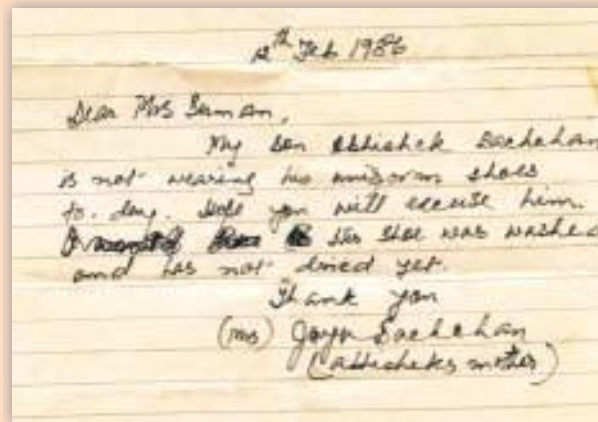 12th Feb 1986
Dear Mrs Suman,
My son Abhishek Bachchan
is not wearing his uniform shoes
to-day. Hope you will excuse him.
His shoe was washed
and has not dried yet.
Thank you
(Mrs) Jaya Bachchan
(Abhisheks mother)